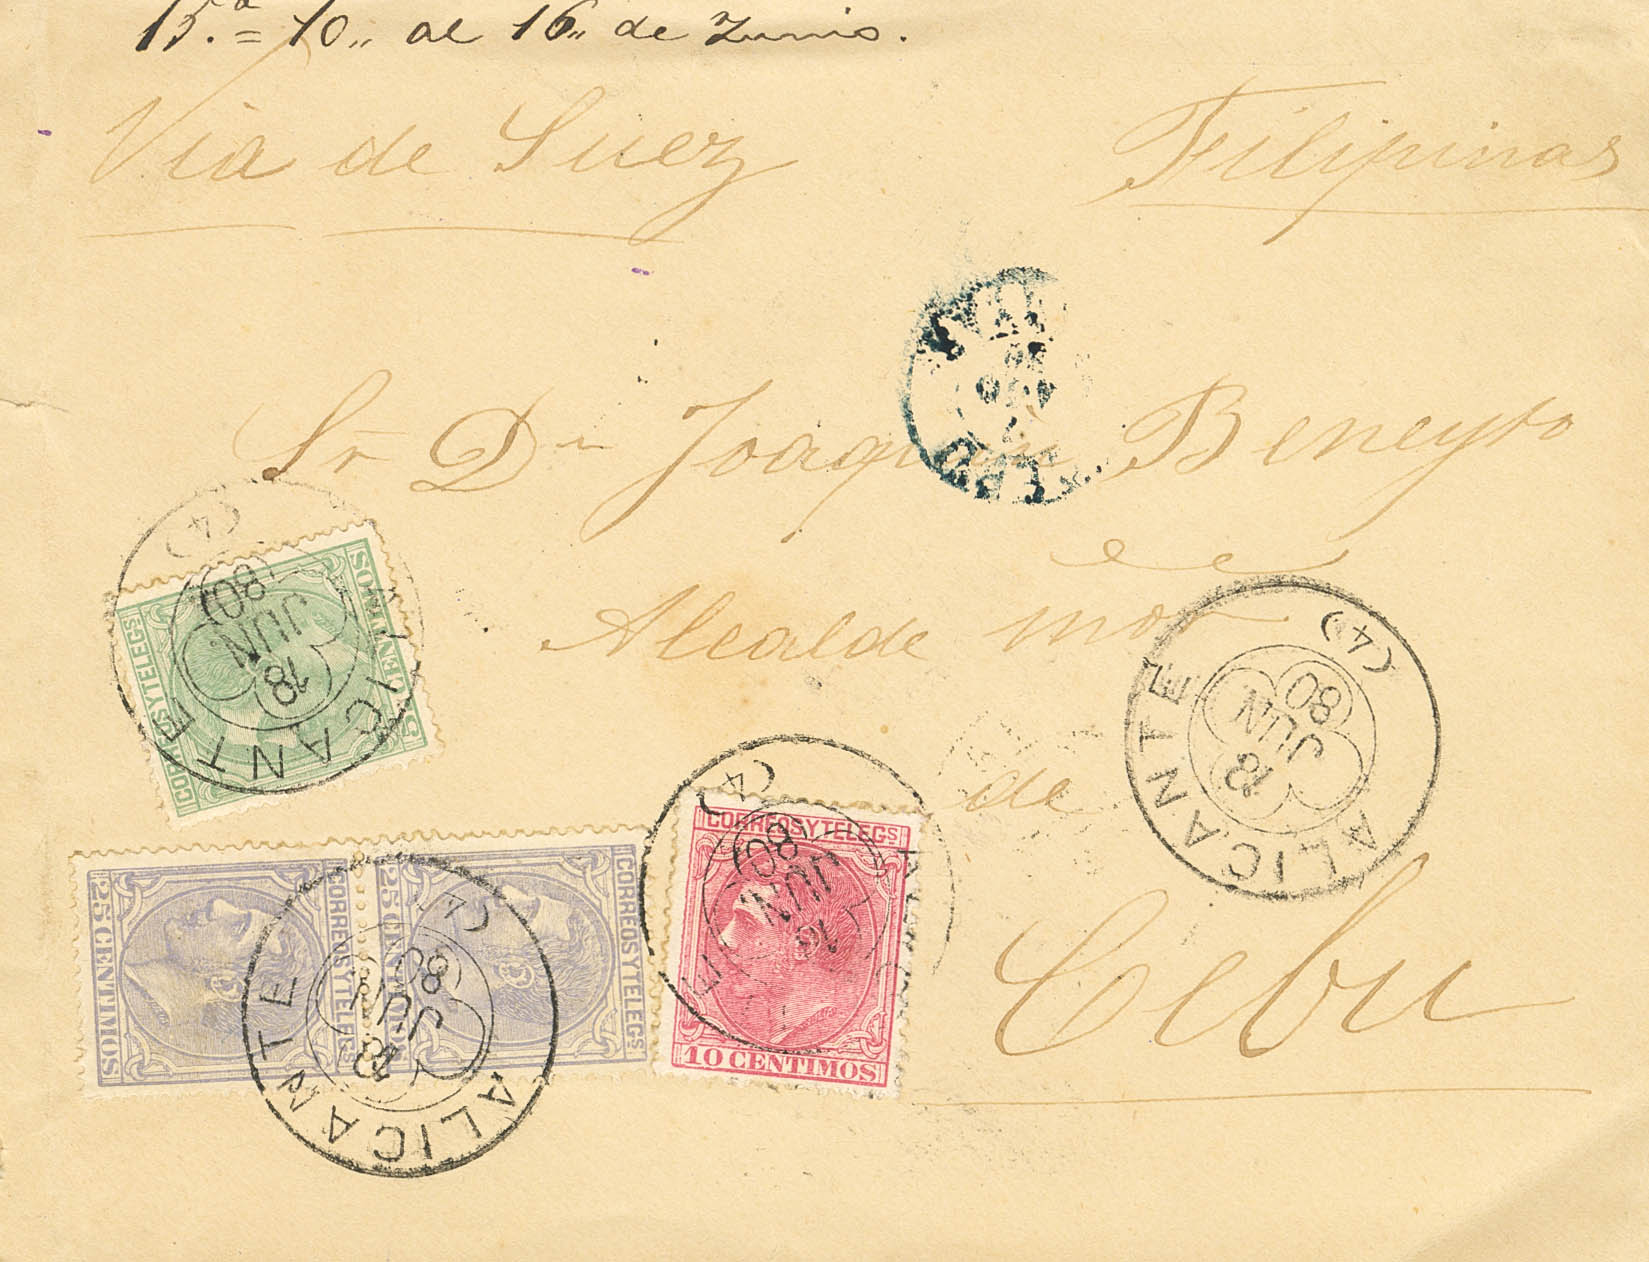 15.ª = 10,, al 16,, de Junio.
Via de Suez
Filipinas
Sr Dn Joaquin Beneyto
Alcalde mor
de
Cebu
5 CENTIMOS
CORREOS Y TELEGS
ALICANTE
18
JUN
80
(4)
25 CENTIMOS
CORREOS Y TELEGS
25 CENTIMOS
CORREOS Y TELEGS
ALICANTE
18
JUN
80
(4)
CORREOS Y TELEGS
10 CENTIMOS
ALICANTE
18
JUN
80
(4)
ALICANTE
18
JUN
80
(4)